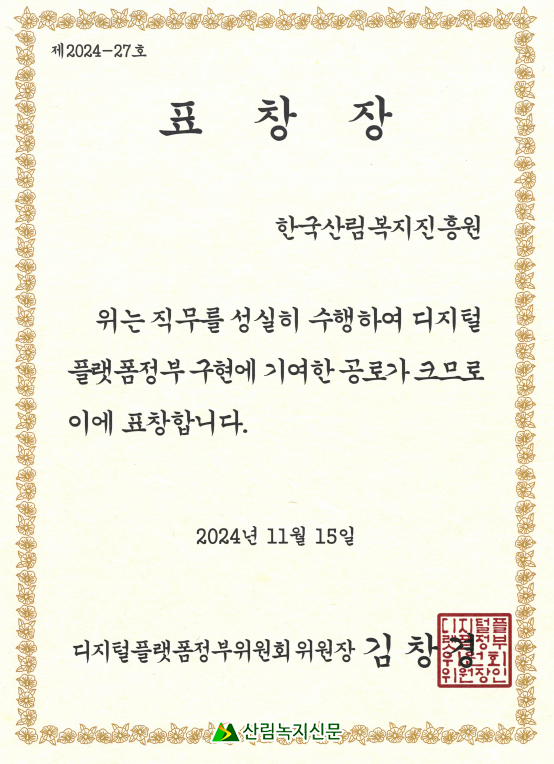 제2024-27호
표 창 장
한국산림복지진흥원
위는 직무를 성실히 수행하여 디지털
플랫폼정부 구현에 기여한 공로가 크므로
이에 표창합니다.
2024년 11월 15일
디지털플랫폼정부위원회위원장 김 창 경
디지털플
랫폼정부
위원회
위원장인
산림녹지신문